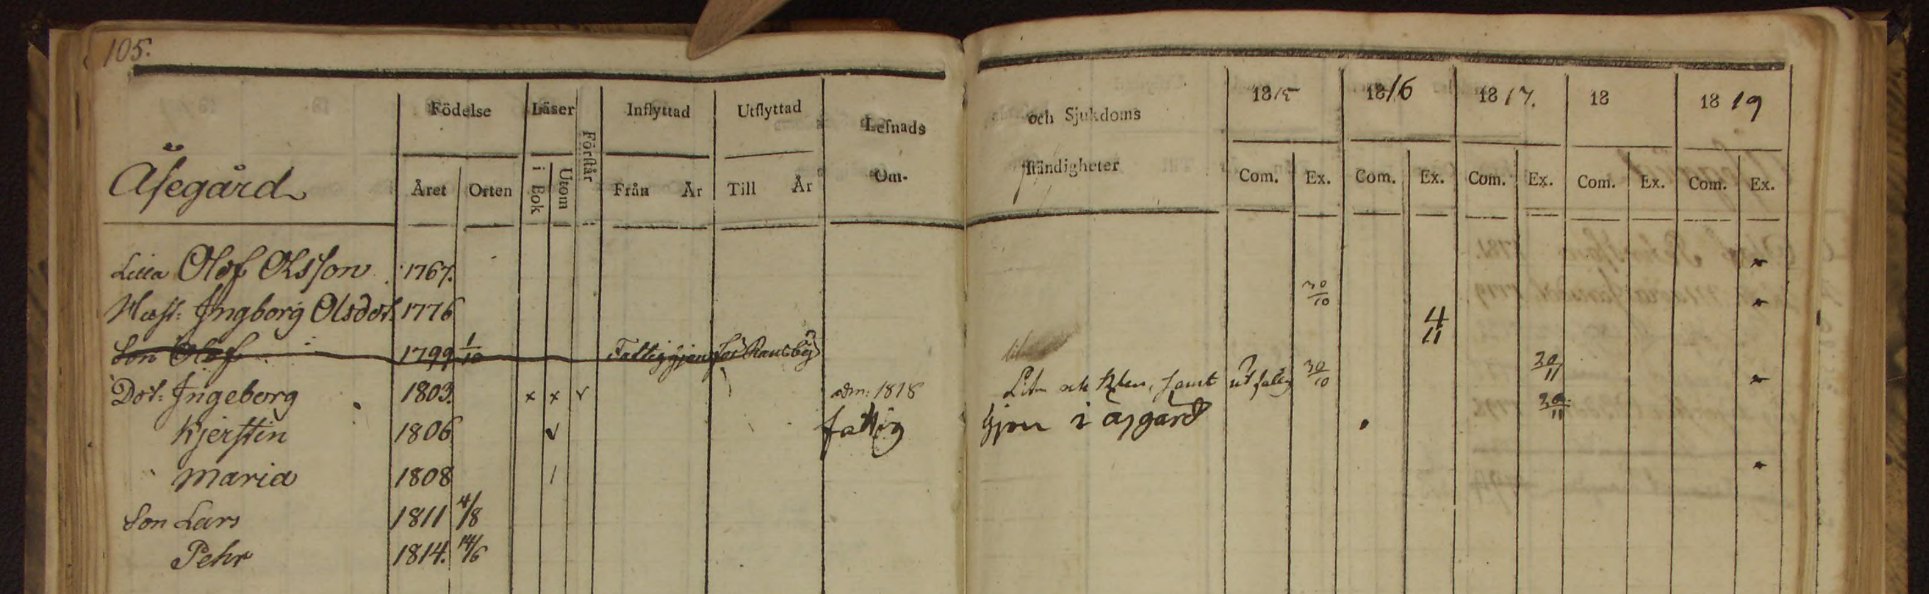 105.
Åsegård
Födelse Läser Förstår Inflyttad Utflyttad Lefnads och Sjukdoms 1815 1816 1817. 18 1819
Året Orten i Bok Utom Från År Till År Om- ständigheter Com. Ex. Com. Ex. Com. Ex. Com. Ex. Com. Ex.
Olof Olsson 1767.
Hust: Ingborg Olsdot. 1776 30/10 4/11
Son Olof 1799 1/10
Dot. Ingeborg 1803. x x v adm: 1818 30/10 30/11
Kjerstin 1806 v fattig hjon i Åsgård 30/11
Maria 1808
Son Lars 1811 4/8
Pehr 1814. 14/6